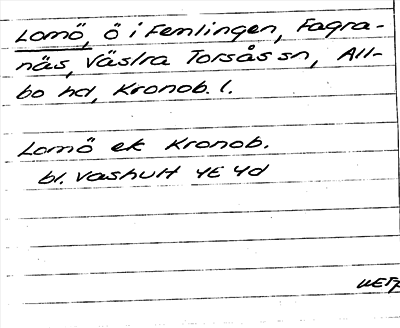 Lomö, ö i Femlingen, Fagra-
näs, Västra Torsås sn, All-
bo hd, Kronob. l.
Lomö ek Kronob.
bl. Vashult 4E 4d